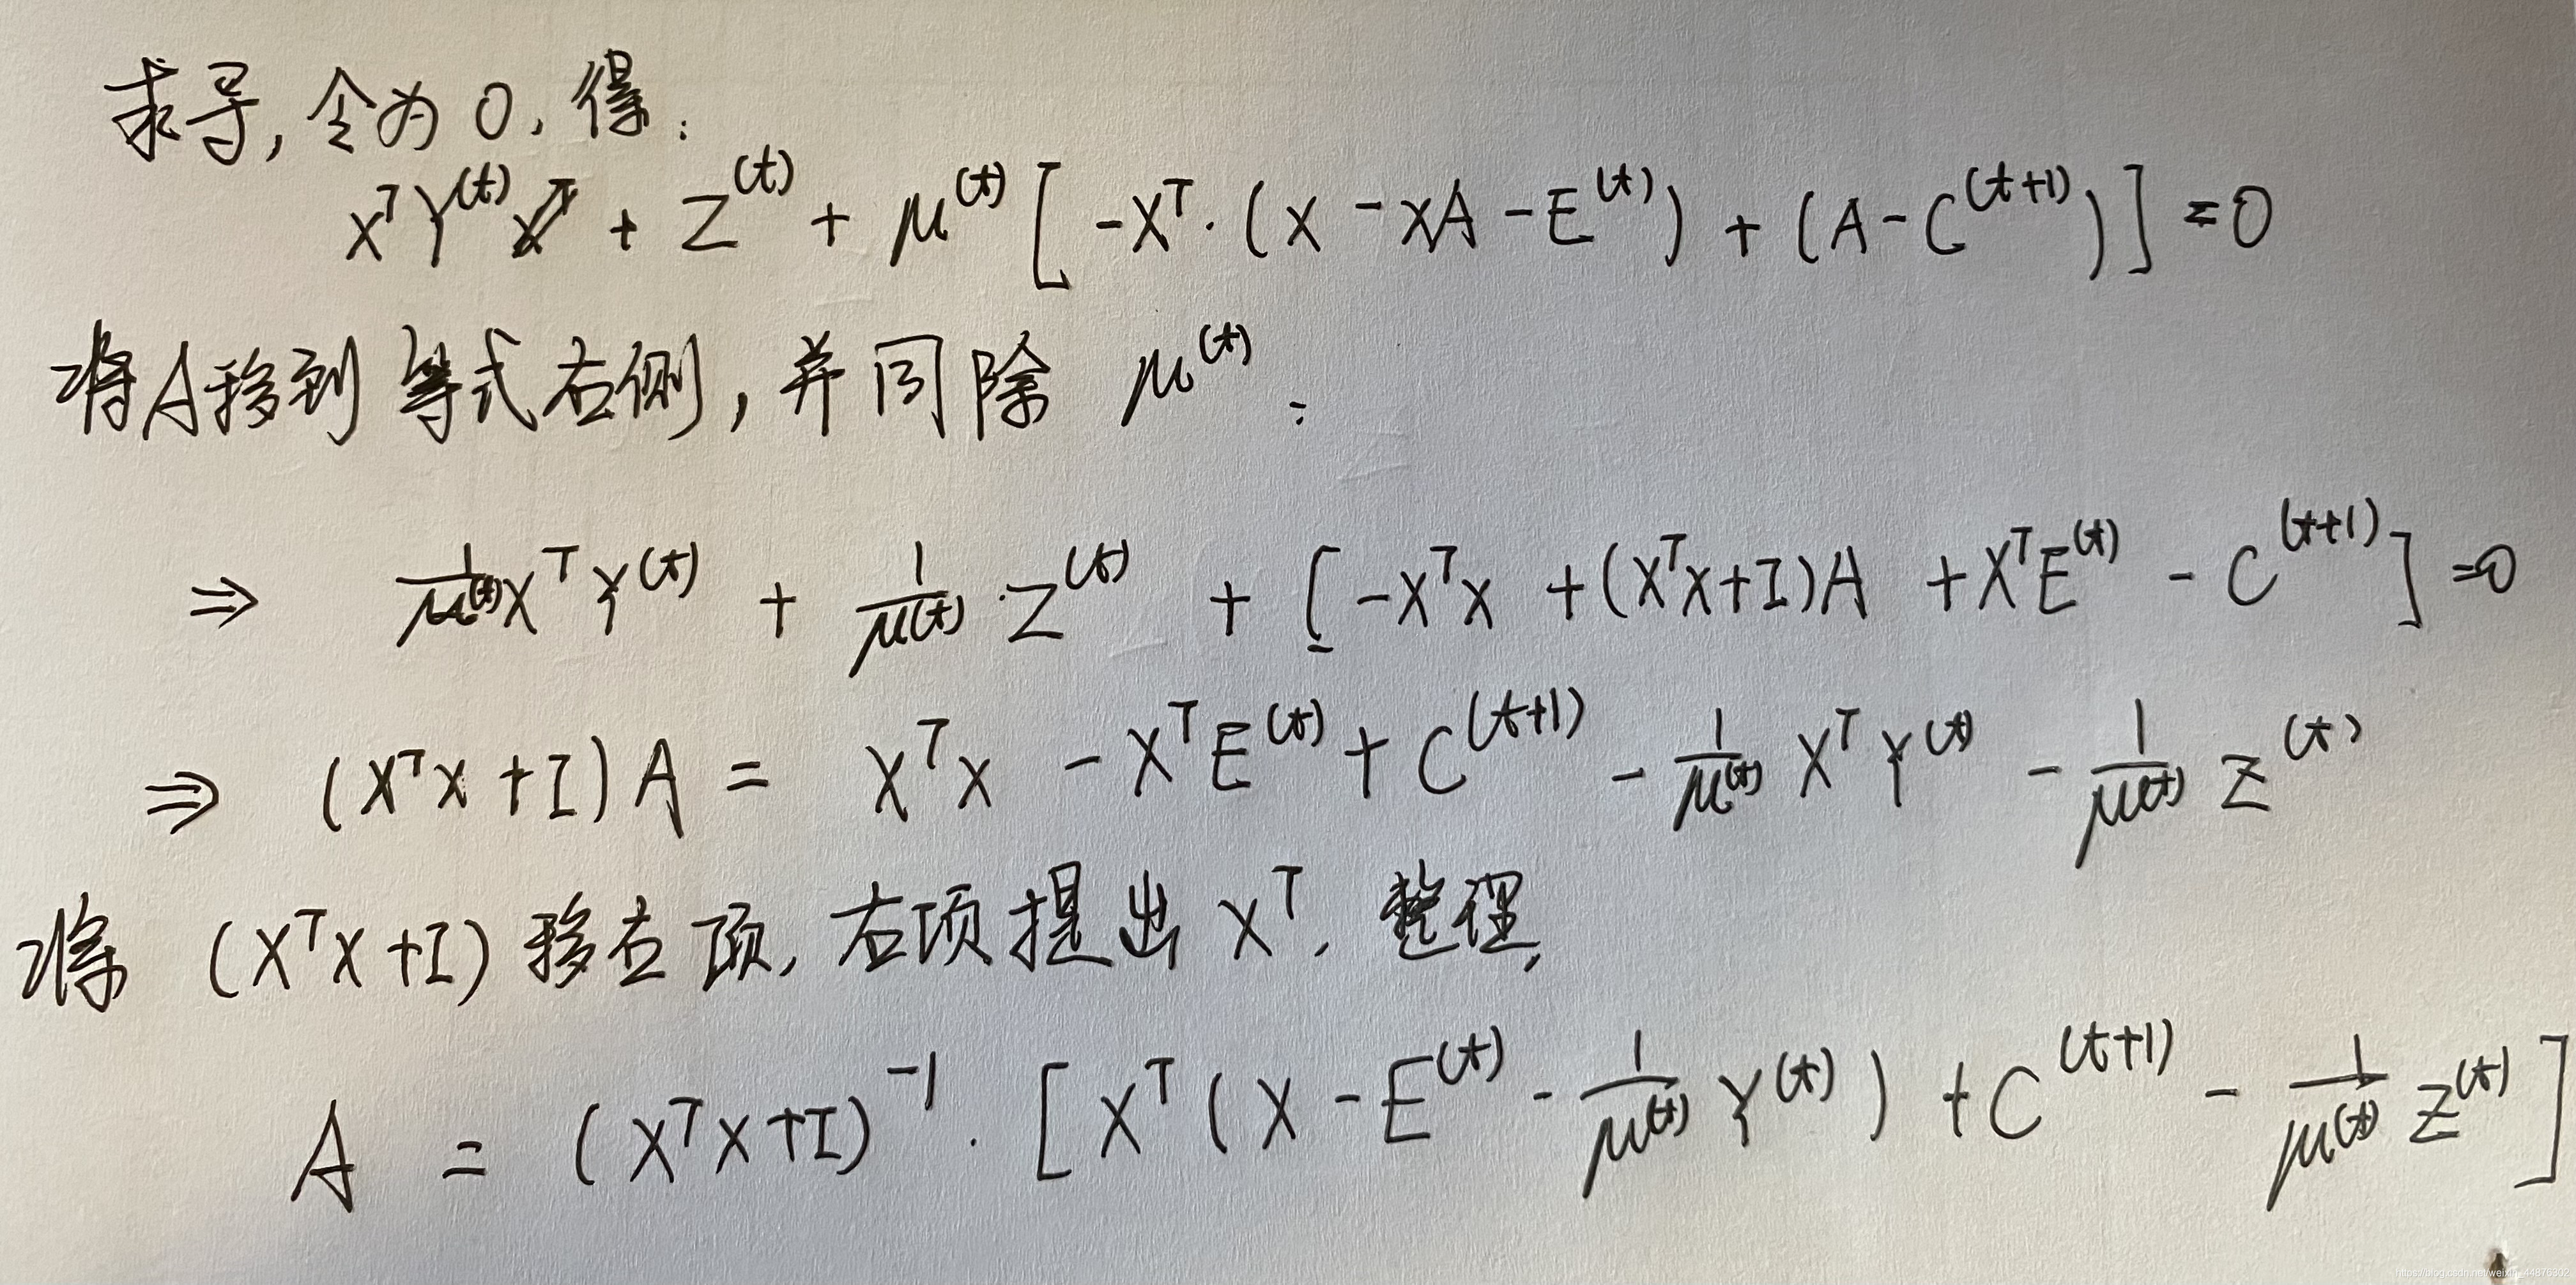 求导,令为0,得:
X^T Y^(t) + Z^(t) + μ^(t) [ -X^T · (X - XA - E^(t)) + (A - C^(t+1)) ] = 0
将A移到等式右侧,并同除 μ^(t):
⇒ 1/μ^(t) X^T Y^(t) + 1/μ^(t) · Z^(t) + [ -X^T X + (X^T X + I)A + X^T E^(t) - C^(t+1) ] = 0
⇒ (X^T X + I) A = X^T X - X^T E^(t) + C^(t+1) - 1/μ^(t) X^T Y^(t) - 1/μ^(t) Z^(t)
将 (X^T X + I) 移右项,右项提出 X^T,整理,
A = (X^T X + I)^-1 · [ X^T (X - E^(t) - 1/μ^(t) Y^(t)) + C^(t+1) - 1/μ^(t) Z^(t) ]